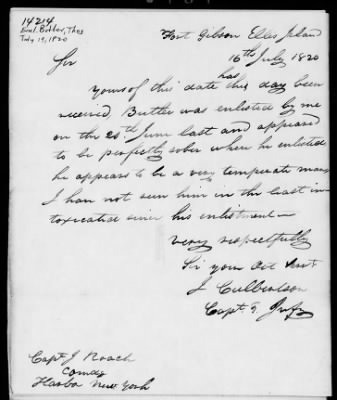 14214
Encl. Butler, Thos
July 19, 1820
Fort Gibson Elles island
16th July 1820
Sir
yours of this date has this day been
received, Butler was enlisted by me
on the 20th June last and appeared
to be perfectly sober when he enlisted
he appears to be a very temperate man
I have not seen him in the least in-
toxicated since his enlistment—
very respectfully
Sir your Obt Servt
J Culbertson
Capt. Infy
Capt J Roach
Comdg
Harbor New York